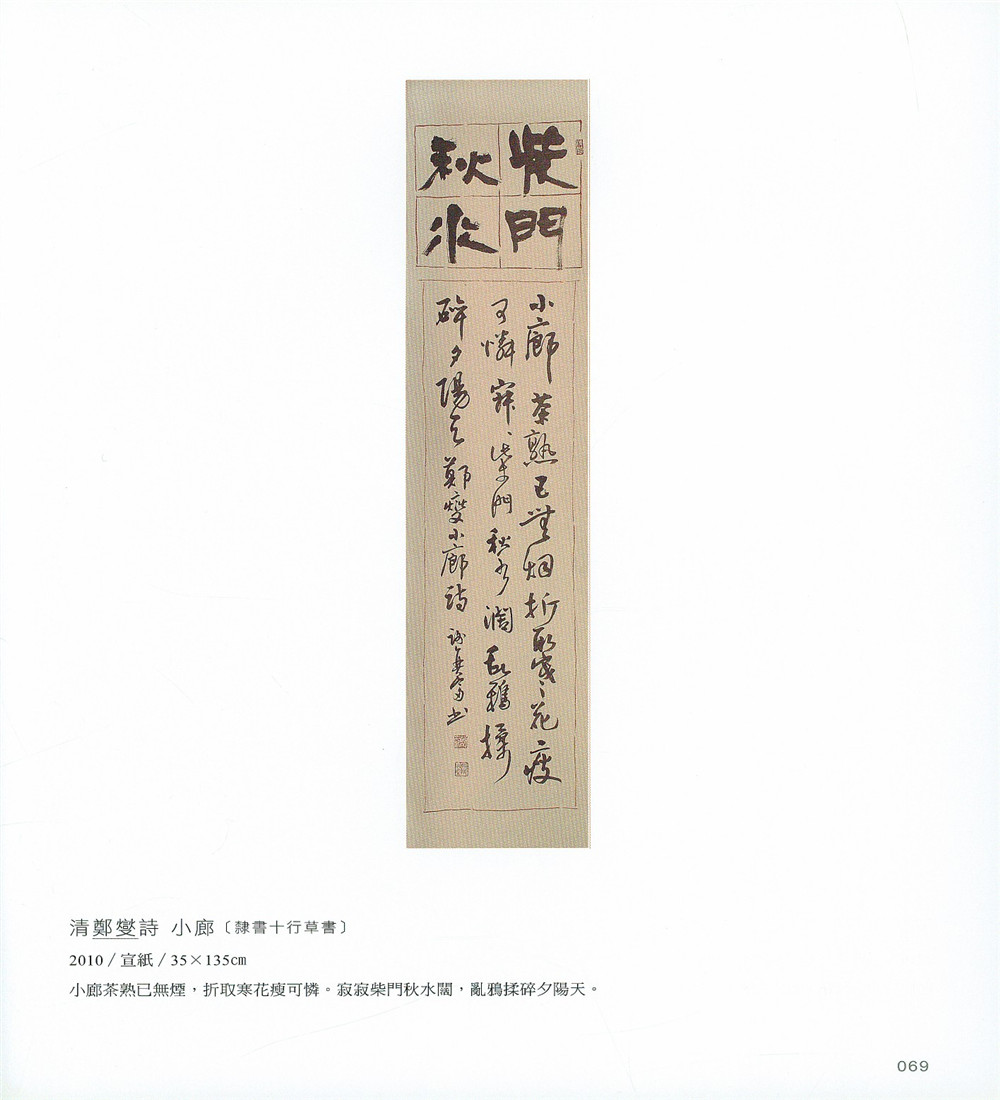 柴門
秋水
小廊茶熟已無烟折取寒花瘦
可憐寂、柴門秋水闊乱鴉揉
碎夕陽天鄭燮小廊詩
清鄭燮詩 小廊〔隸書十行草書〕
2010 / 宣紙 / 35×135㎝
小廊茶熟已無煙，折取寒花瘦可憐。寂寂柴門秋水闊，亂鴉揉碎夕陽天。
069